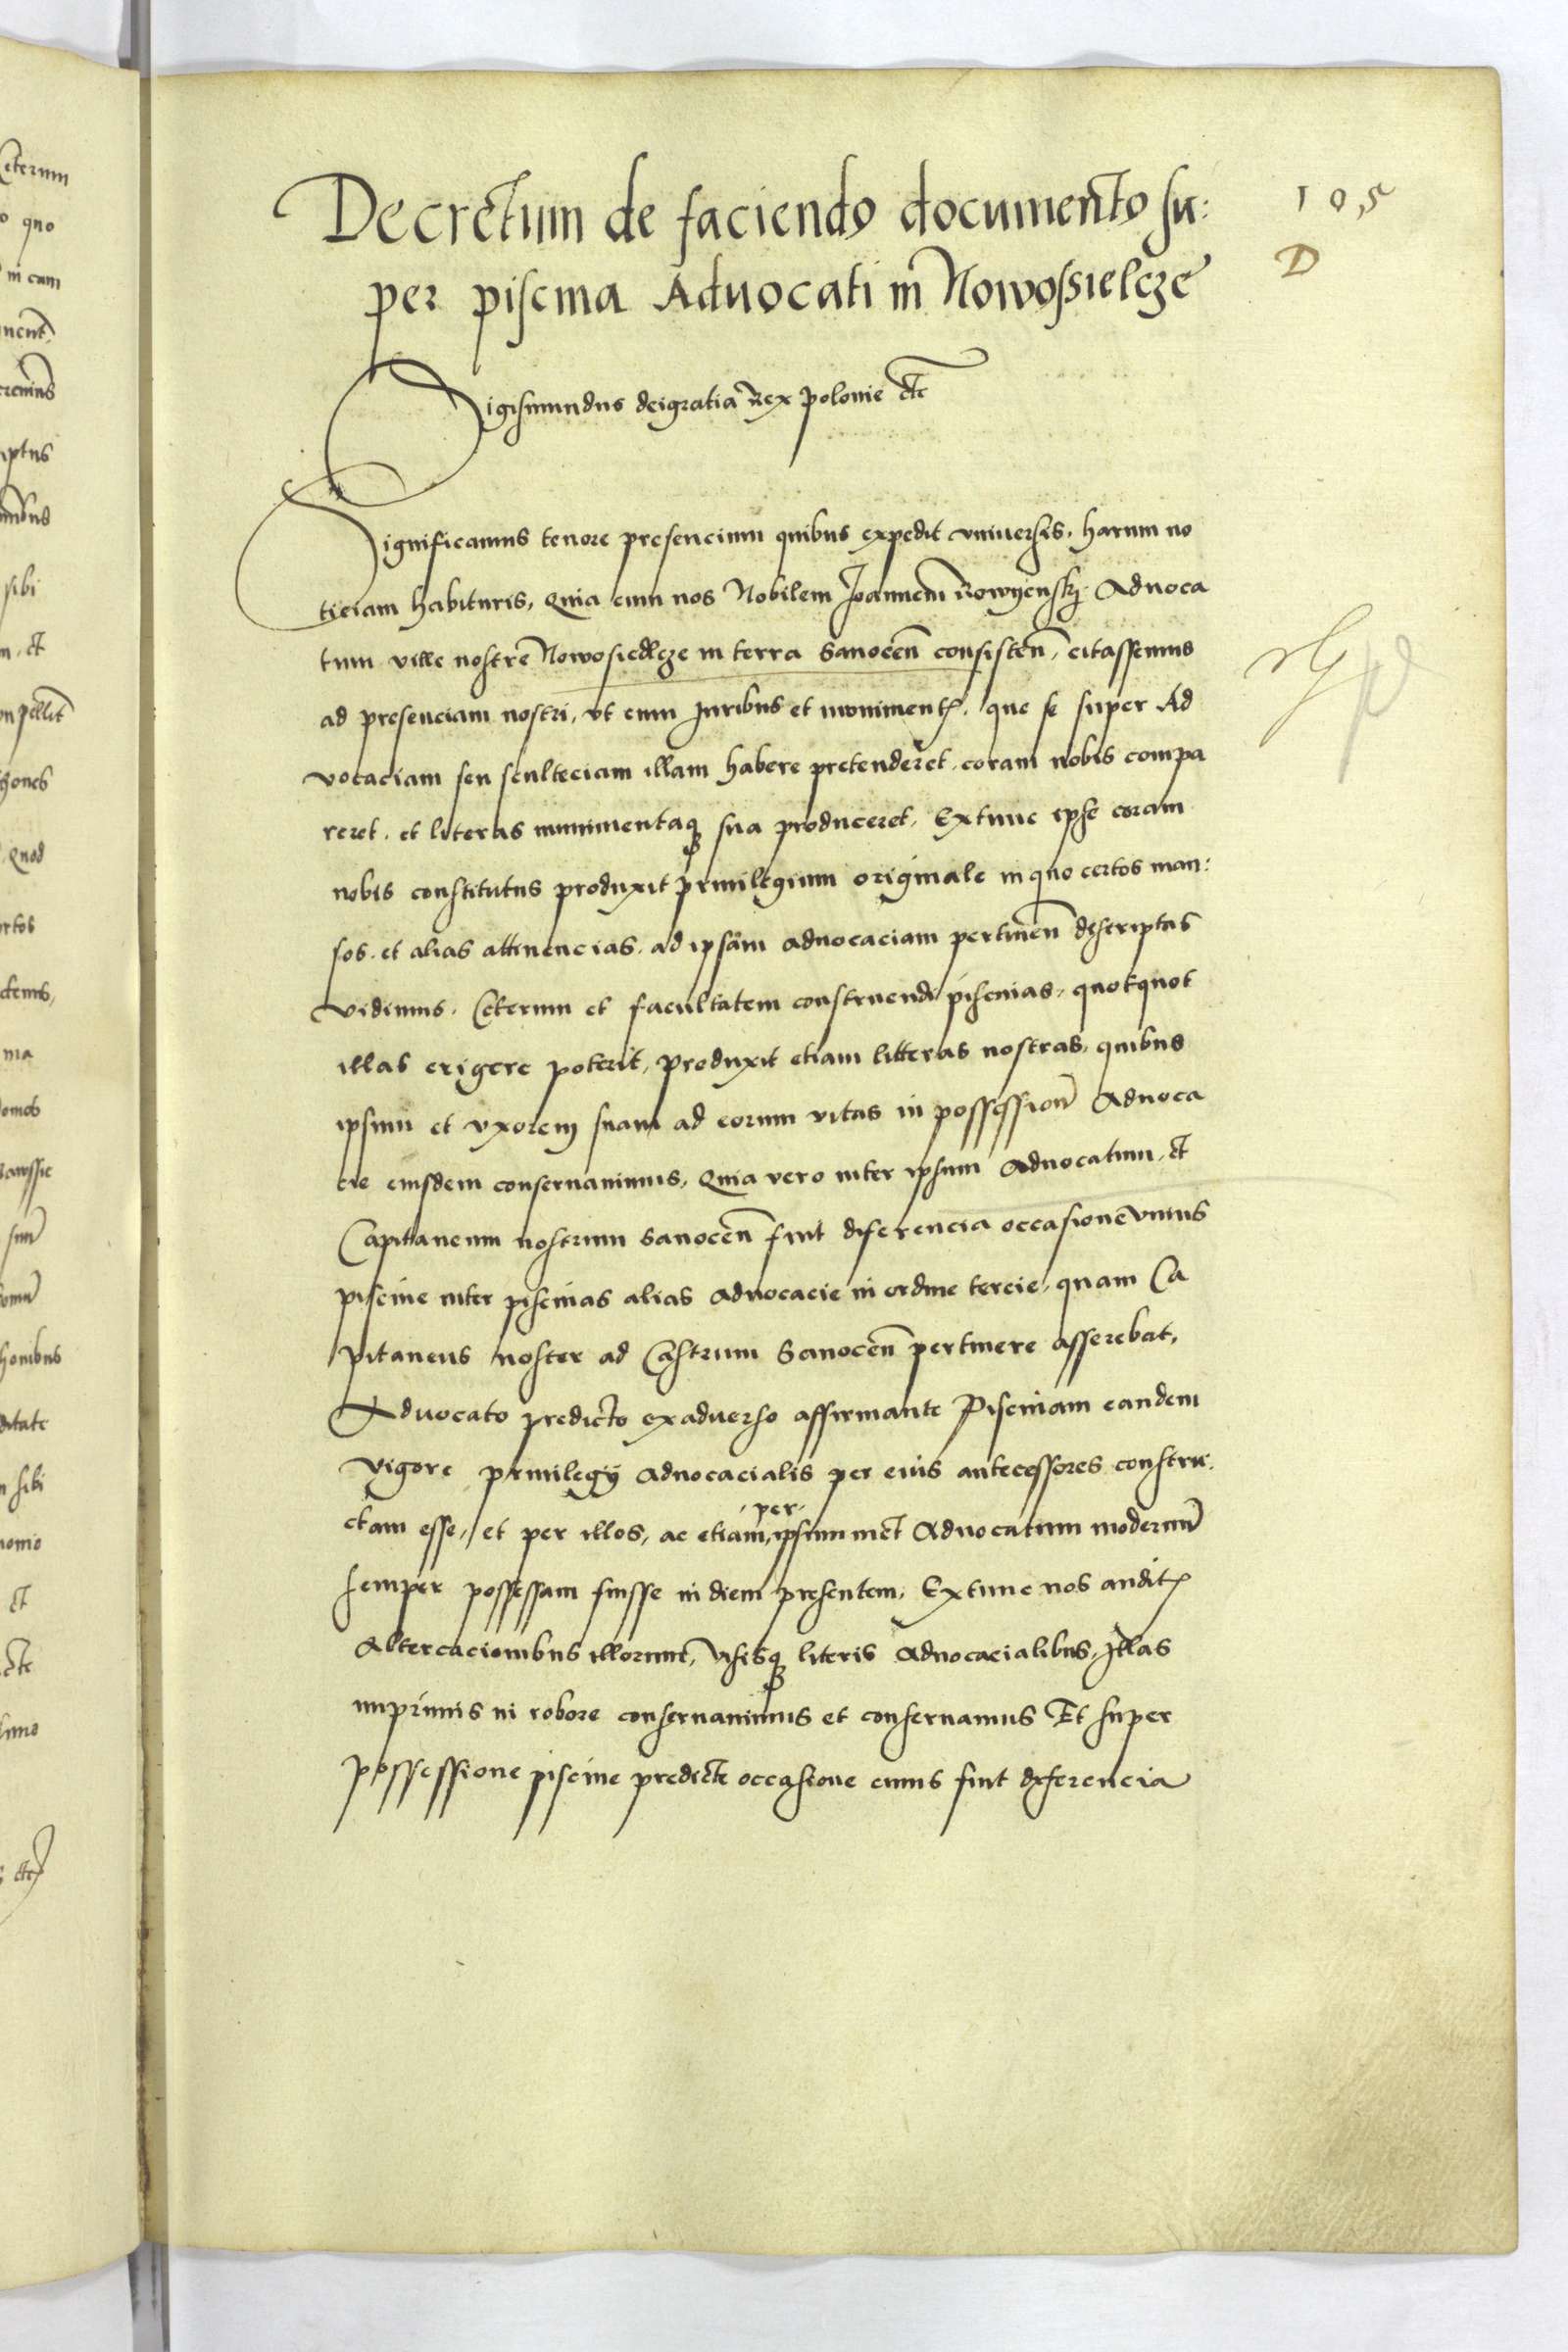 105
D
Decretum de faciendo documento su:
per piscina Aduocati in Nowossielcze
Sigismundus deigratia Rex Polonie etc
Significamus tenore presencium quibus expedit vniuersis, harum no
ticiam habituris, Quia cum nos Nobilem Joannem Rowyensky Aduoca
tum ville nostre Nowosiedlcze in terra Sanocen consisten, citassemus
ad presenciam nostri, vt cum Juribus et moniment, que se super Ad
vocaciam seu sculteciam illam habere pretenderet, coram nobis compa
reret, et literas munimentaq sua produceret, Extunc ipse coram
nobis constitutus produxit priuilegium originale in quo certos man:
sos, et alias attinencias, ad ipsam aduocaciam pertinen descriptas
vidimus, Ceterum et facultatem construendi piscinas, quotquot
illas erigere poterit, produxit etiam litteras nostras, quibus
ipsum et vxorem suam ad eorum vitas in possession Aduoca
cie eiusdem conseruauimus, Quia vero inter ipsum Aduocatum, et
Capitaneum nostrum Sanocen fuit diferencia occasione vnius
piscine inter piscinas alias aduocacie in ordine tercie, quam Ca
pitaneus noster ad Castrum Sanocen pertinere asserebat,
Aduocato predicto exaduerso affirmante Piscinam eandem
vigore priuilegij aduocacialis per eius antecessores constru:
ctam esse, et per illos, ac etiam, per ipsummet Aduocatum modernu
semper possessam fuisse in diem presentem, Extunc nos audit
altercacionibus illorum, visisq literis aduocacialibus, Illas
inprimis in robore conseruauimus et conseruamus Et super
possessione piscine predicte occasione cuius fuit diferencia